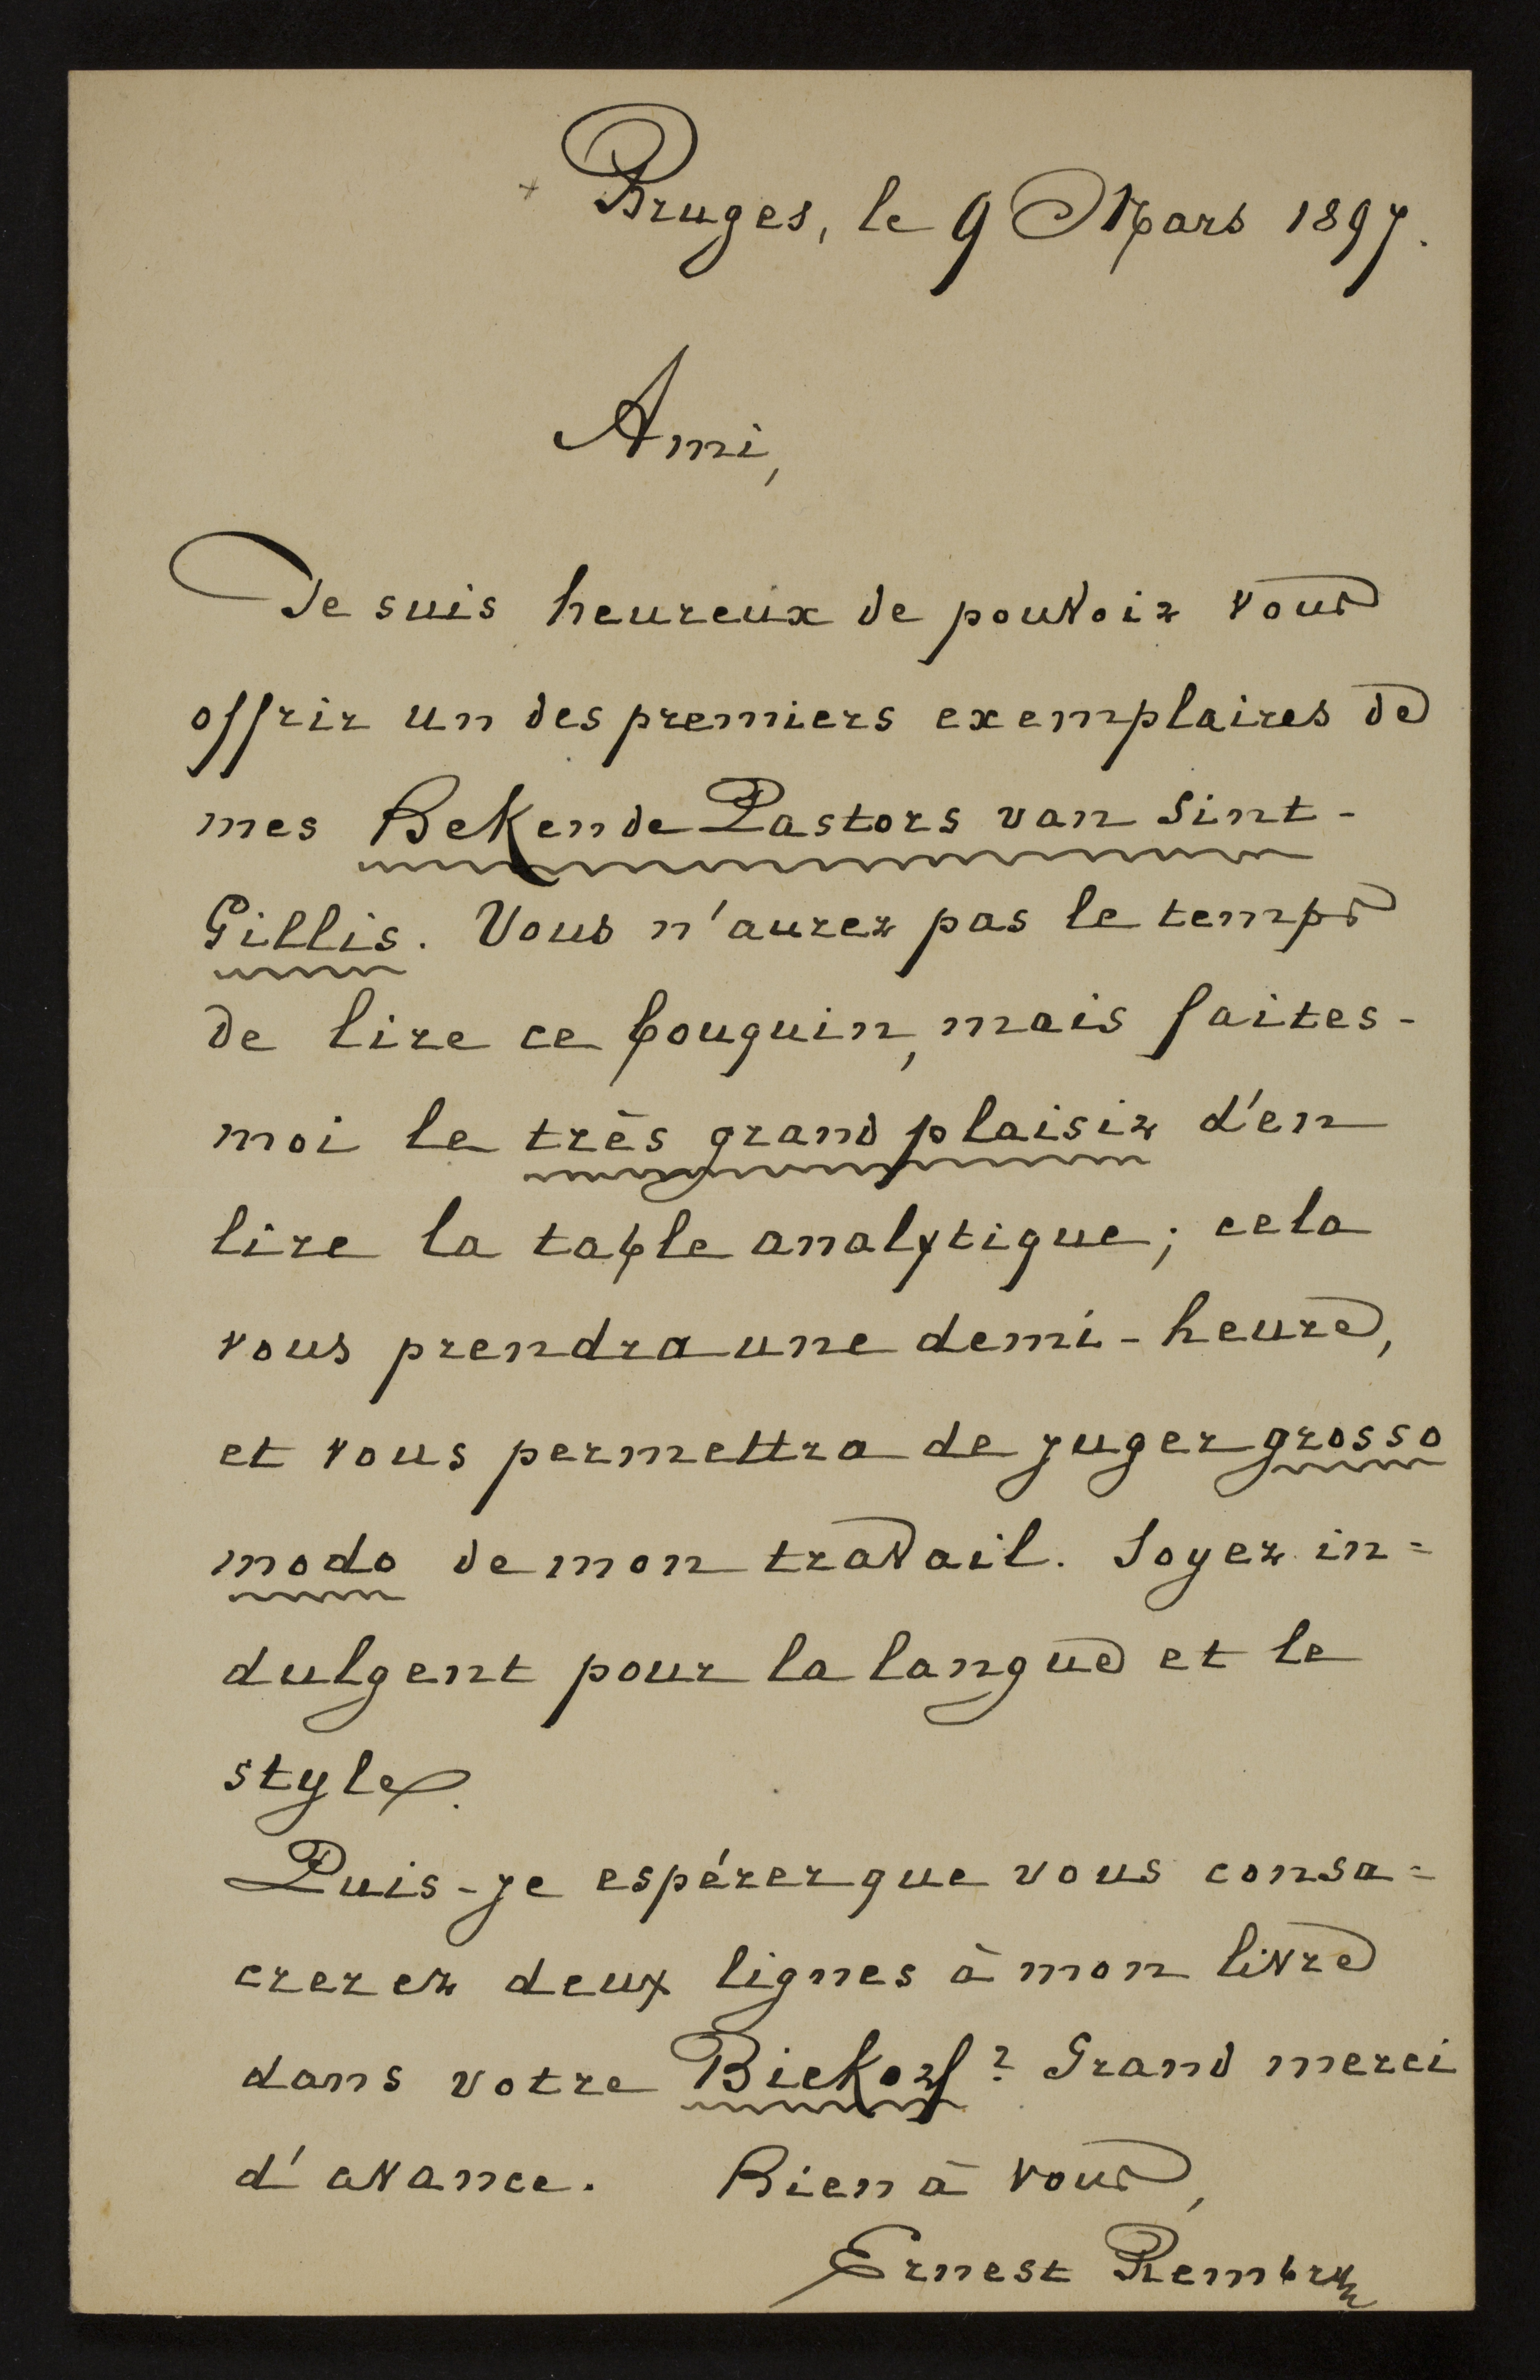 + Bruges, le 9 Mars 1897.
Ami,
Je suis heureux de pouvoir vous
offrir un des premiers exemplaires de
mes Bekende Pastors van Sint-
Gillis. Vous n'aurez pas le temps
de lire ce bouquin, mais faites-
moi le très grand plaisir d'en
lire la table analytique; cela
vous prendra une demi-heure,
et vous permettra de juger grosso
modo de mon travail. Soyez in=
dulgent pour la langue et le
style.
Puis-je espérer que vous consa=
crerez deux lignes à mon livre
dans votre Biekorf? Grand merci
d'avance. Bien à vous,
Ernest Rembry